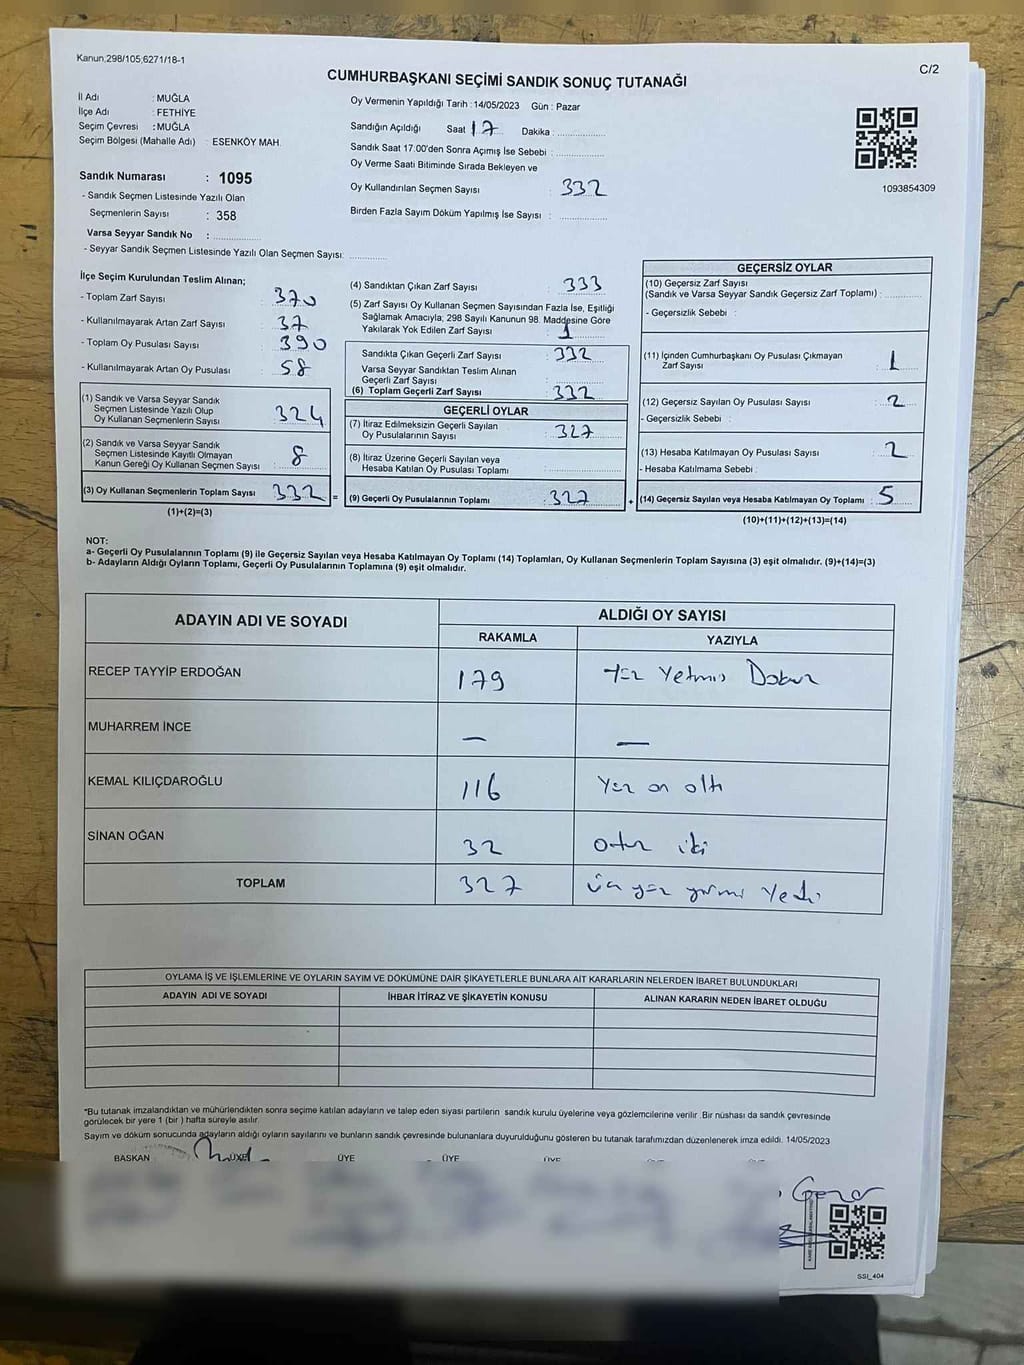 Kanun,298/105,6271/18-1
C/2
CUMHURBAŞKANI SEÇİMİ SANDIK SONUÇ TUTANAĞI
İl Adı : MUĞLA
İlçe Adı : FETHİYE
Seçim Çevresi : MUĞLA
Seçim Bölgesi (Mahalle Adı) ESENKÖY MAH.
Sandık Numarası : 1095
- Sandık Seçmen Listesinde Yazılı Olan
Seçmenlerin Sayısı : 358
Varsa Seyyar Sandık No :
- Seyyar Sandık Seçmen Listesinde Yazılı Olan Seçmen Sayısı:
Oy Vermenin Yapıldığı Tarih : 14/05/2023 Gün : Pazar
Sandığın Açıldığı Saat 17 Dakika :
Sandık Saat 17:00'den Sonra Açımış İse Sebebi :
Oy Verme Saati Bitiminde Sırada Bekleyen ve
Oy Kullandırılan Seçmen Sayısı : 332
Birden Fazla Sayım Döküm Yapılmış İse Sayısı :
1093854309
İlçe Seçim Kurulundan Teslim Alınan;
- Toplam Zarf Sayısı : 370
- Kullanılmayarak Artan Zarf Sayısı : 37
- Toplam Oy Pusulası Sayısı : 390
- Kullanılmayarak Artan Oy Pusulası : 58
(1) Sandık ve Varsa Seyyar Sandık
Seçmen Listesinde Yazılı Olup
Oy Kullanan Seçmenlerin Sayısı : 324
(2) Sandık ve Varsa Seyyar Sandık
Seçmen Listesinde Kayıtlı Olmayan
Kanun Gereği Oy Kullanan Seçmen Sayısı : 8
(3) Oy Kullanan Seçmenlerin Toplam Sayısı : 332 =
(1)+(2)=(3)
(4) Sandıktan Çıkan Zarf Sayısı : 333
(5) Zarf Sayısı Oy Kullanan Seçmen Sayısından Fazla İse, Eşitliği
Sağlamak Amacıyla; 298 Sayılı Kanunun 98. Maddesine Göre
Yakılarak Yok Edilen Zarf Sayısı : 1
Sandıkta Çıkan Geçerli Zarf Sayısı : 332
Varsa Seyyar Sandıktan Teslim Alınan
Geçerli Zarf Sayısı :
(6) Toplam Geçerli Zarf Sayısı : 332
GEÇERLİ OYLAR
(7) İtiraz Edilmeksizin Geçerli Sayılan
Oy Pusulalarının Sayısı : 327
(8) İtiraz Üzerine Geçerli Sayılan veya
Hesaba Katılan Oy Pusulası Toplamı :
(9) Geçerli Oy Pusulalarının Toplamı : 327 +
GEÇERSİZ OYLAR
(10) Geçersiz Zarf Sayısı
(Sandık ve Varsa Seyyar Sandık Geçersiz Zarf Toplamı) :
- Geçersizlik Sebebi :
(11) İçinden Cumhurbaşkanı Oy Pusulası Çıkmayan
Zarf Sayısı : 1
(12) Geçersiz Sayılan Oy Pusulası Sayısı : 2
- Geçersizlik Sebebi :
(13) Hesaba Katılmayan Oy Pusulası Sayısı : 2
- Hesaba Katılmama Sebebi :
(14) Geçersiz Sayılan veya Hesaba Katılmayan Oy Toplamı : 5
(10)+(11)+(12)+(13)=(14)
NOT:
a- Geçerli Oy Pusulalarının Toplamı (9) ile Geçersiz Sayılan veya Hesaba Katılmayan Oy Toplamı (14) Toplamları, Oy Kullanan Seçmenlerin Toplam Sayısına (3) eşit olmalıdır. (9)+(14)=(3)
b- Adayların Aldığı Oyların Toplamı, Geçerli Oy Pusulalarının Toplamına (9) eşit olmalıdır.
ADAYIN ADI VE SOYADI
ALDIĞI OY SAYISI
RAKAMLA YAZIYLA
RECEP TAYYİP ERDOĞAN 179 Yüz Yetmiş Dokuz
MUHARREM İNCE — —
KEMAL KILIÇDAROĞLU 116 Yüz on altı
SİNAN OĞAN 32 otuz iki
TOPLAM 327 üç yüz yirmi Yedi
OYLAMA İŞ VE İŞLEMLERİNE VE OYLARIN SAYIM VE DÖKÜMÜNE DAİR ŞİKAYETLERLE BUNLARA AİT KARARLARIN NELERDEN İBARET BULUNDUKLARI
ADAYIN ADI VE SOYADI İHBAR İTİRAZ VE ŞİKAYETİN KONUSU ALINAN KARARIN NEDEN İBARET OLDUĞU
*Bu tutanak imzalandıktan ve mühürlendikten sonra seçime katılan adayların ve talep eden siyasi partilerin sandık kurulu üyelerine veya gözlemcilerine verilir .Bir nüshası da sandık çevresinde
görülecek bir yere 1 (bir ) hafta süreyle asılır.
Sayım ve döküm sonucunda adayların aldığı oyların sayılarını ve bunların sandık çevresinde bulunanlara duyurulduğunu gösteren bu tutanak tarafımızdan düzenlenerek imza edildi. 14/05/2023
BAŞKAN ÜYE ÜYE ÜYE
SSI_404